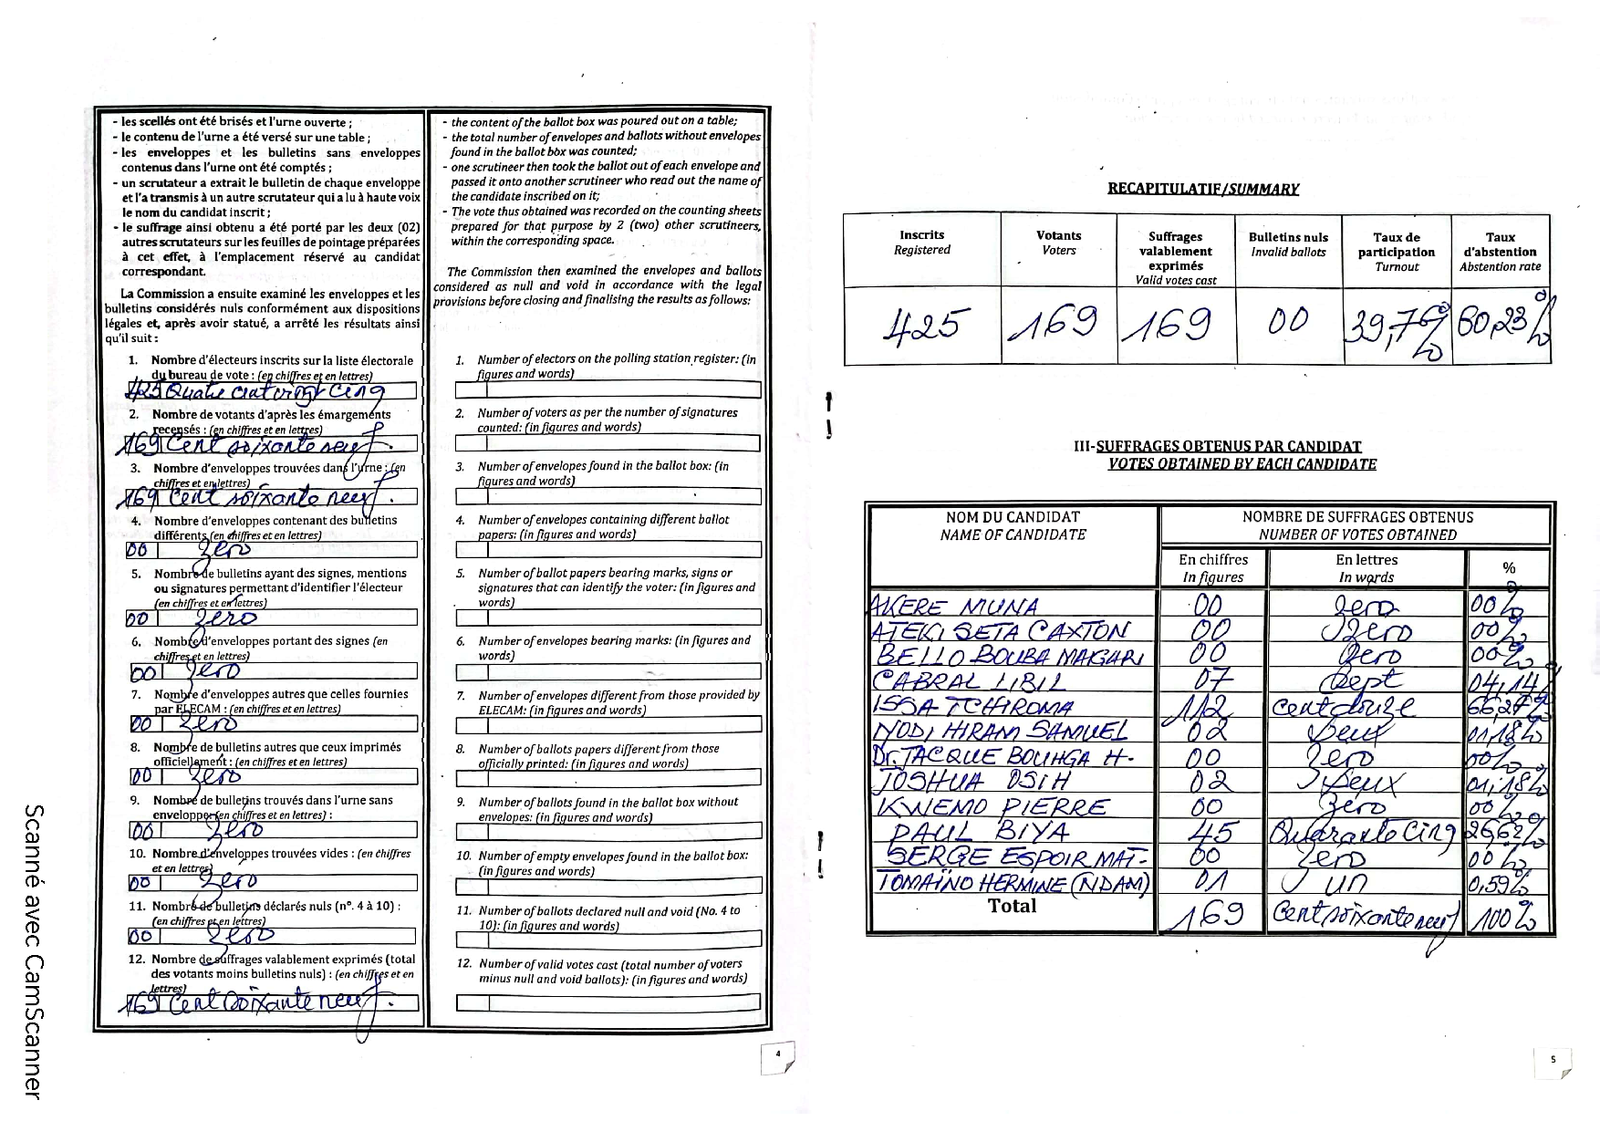 - les scellés ont été brisés et l'urne ouverte ;
- le contenu de l'urne a été versé sur une table ;
- les enveloppes et les bulletins sans enveloppes
contenus dans l'urne ont été comptés ;
- un scrutateur a extrait le bulletin de chaque enveloppe
et l'a transmis à un autre scrutateur qui a lu à haute voix
le nom du candidat inscrit ;
- le suffrage ainsi obtenu a été porté par les deux (02)
autres scrutateurs sur les feuilles de pointage préparées
à cet effet, à l'emplacement réservé au candidat
correspondant.
La Commission a ensuite examiné les enveloppes et les
bulletins considérés nuls conformément aux dispositions
légales et, après avoir statué, a arrêté les résultats ainsi
qu'il suit :
1. Nombre d'électeurs inscrits sur la liste électorale
du bureau de vote : (en chiffres et en lettres)
425 Quatre cent vingt cinq
2. Nombre de votants d'après les émargements
recensés : (en chiffres et en lettres)
169 Cent soixante neuf.
3. Nombre d'enveloppes trouvées dans l'urne : (en
chiffres et en lettres)
169 Cent soixante neuf.
4. Nombre d'enveloppes contenant des bulletins
différents (en chiffres et en lettres)
00 zéro
5. Nombre de bulletins ayant des signes, mentions
ou signatures permettant d'identifier l'électeur
(en chiffres et en lettres)
00 zéro
6. Nombre d'enveloppes portant des signes (en
chiffres et en lettres)
00 zéro
7. Nombre d'enveloppes autres que celles fournies
par ELECAM : (en chiffres et en lettres)
00 zéro
8. Nombre de bulletins autres que ceux imprimés
officiellement : (en chiffres et en lettres)
00 zéro
9. Nombre de bulletins trouvés dans l'urne sans
enveloppe (en chiffres et en lettres) :
00 zéro
10. Nombre d'enveloppes trouvées vides : (en chiffres
et en lettres)
00 zéro
11. Nombre de bulletins déclarés nuls (n°. 4 à 10) :
(en chiffres et en lettres)
00 zéro
12. Nombre de suffrages valablement exprimés (total
des votants moins bulletins nuls) : (en chiffres et en
lettres)
169 Cent soixante neuf.
- the content of the ballot box was poured out on a table;
- the total number of envelopes and ballots without envelopes
found in the ballot box was counted;
- one scrutineer then took the ballot out of each envelope and
passed it onto another scrutineer who read out the name of
the candidate inscribed on it;
- The vote thus obtained was recorded on the counting sheets
prepared for that purpose by 2 (two) other scrutineers,
within the corresponding space.
The Commission then examined the envelopes and ballots
considered as null and void in accordance with the legal
provisions before closing and finalising the results as follows:
1. Number of electors on the polling station register: (in
figures and words)
2. Number of voters as per the number of signatures
counted: (in figures and words)
3. Number of envelopes found in the ballot box: (in
figures and words)
4. Number of envelopes containing different ballot
papers: (in figures and words)
5. Number of ballot papers bearing marks, signs or
signatures that can identify the voter: (in figures and
words)
6. Number of envelopes bearing marks: (in figures and
words)
7. Number of envelopes different from those provided by
ELECAM: (in figures and words)
8. Number of ballots papers different from those
officially printed: (in figures and words)
9. Number of ballots found in the ballot box without
envelopes: (in figures and words)
10. Number of empty envelopes found in the ballot box:
(in figures and words)
11. Number of ballots declared null and void (No. 4 to
10): (in figures and words)
12. Number of valid votes cast (total number of voters
minus null and void ballots): (in figures and words)
4
Scanné avec CamScanner
RECAPITULATIF/SUMMARY
Inscrits Registered | Votants Voters | Suffrages valablement exprimés Valid votes cast | Bulletins nuls Invalid ballots | Taux de participation Turnout | Taux d'abstention Abstention rate
425 169 169 00 39,77% 60,23%
III-SUFFRAGES OBTENUS PAR CANDIDAT
VOTES OBTAINED BY EACH CANDIDATE
NOM DU CANDIDAT NOMBRE DE SUFFRAGES OBTENUS
NAME OF CANDIDATE NUMBER OF VOTES OBTAINED
En chiffres En lettres %
In figures In words
AKERE MUNA 00 zero 00%
ATEKI SETA CAXTON 00 zero 00%
BELLO BOUBA MAIGARI 00 zero 00%
CABRAL LIBII 07 Sept 04,14%
ISSA TCHIROMA 112 cent douze 66,27%
IYODI HIRAM SAMUEL 02 Deux 01,18%
Dr. JACQUE BOUHGA H- 00 zero 00%
JOSHUA OSIH 02 Deux 01,18%
KWEMO PIERRE 00 zéro 00%
PAUL BIYA 45 Quarante Cinq 26,62%
SERGE ESPOIR MAT- 00 zero 00%
TOMAÏNO HERMINE (NDAM) 01 un 0,59%
Total 169 Cent soixante neuf 100%
5